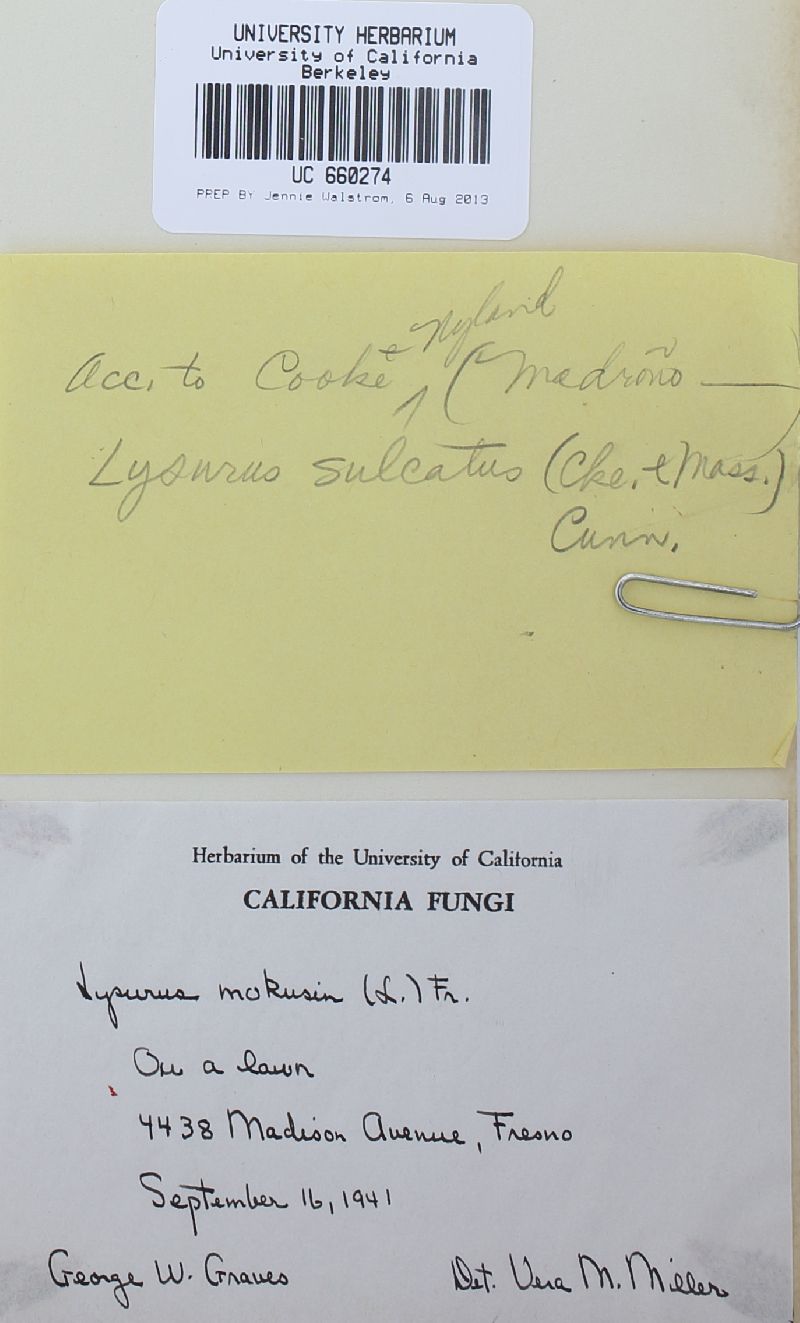 UNIVERSITY HERBARIUM
University of California
Berkeley
UC 660274
PREP BY Jennie Walstrom, 6 Aug 2013
& Nyland
Acc. to Cooke ^ (Madroño —)
Lysurus sulcatus (Cke. & Mass.)
Cunn.
Herbarium of the University of California
CALIFORNIA FUNGI
Lysurus mokusin (L.) Fr.
On a lawn
4438 Madison Avenue, Fresno
September 16, 1941
George W. Graves Det. Vera M. Miller